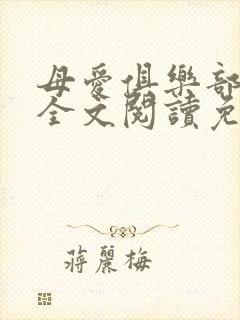 母愛俱樂部
全文閱讀免
蔣麗梅